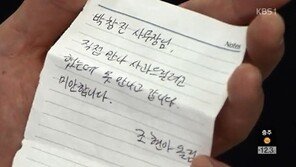 KBS1
박창진 사무장님!
Notes
직접 만나 사과드리려고
했는데 못 만나고 갑니다
미안합니다.
조현아 올림
충주